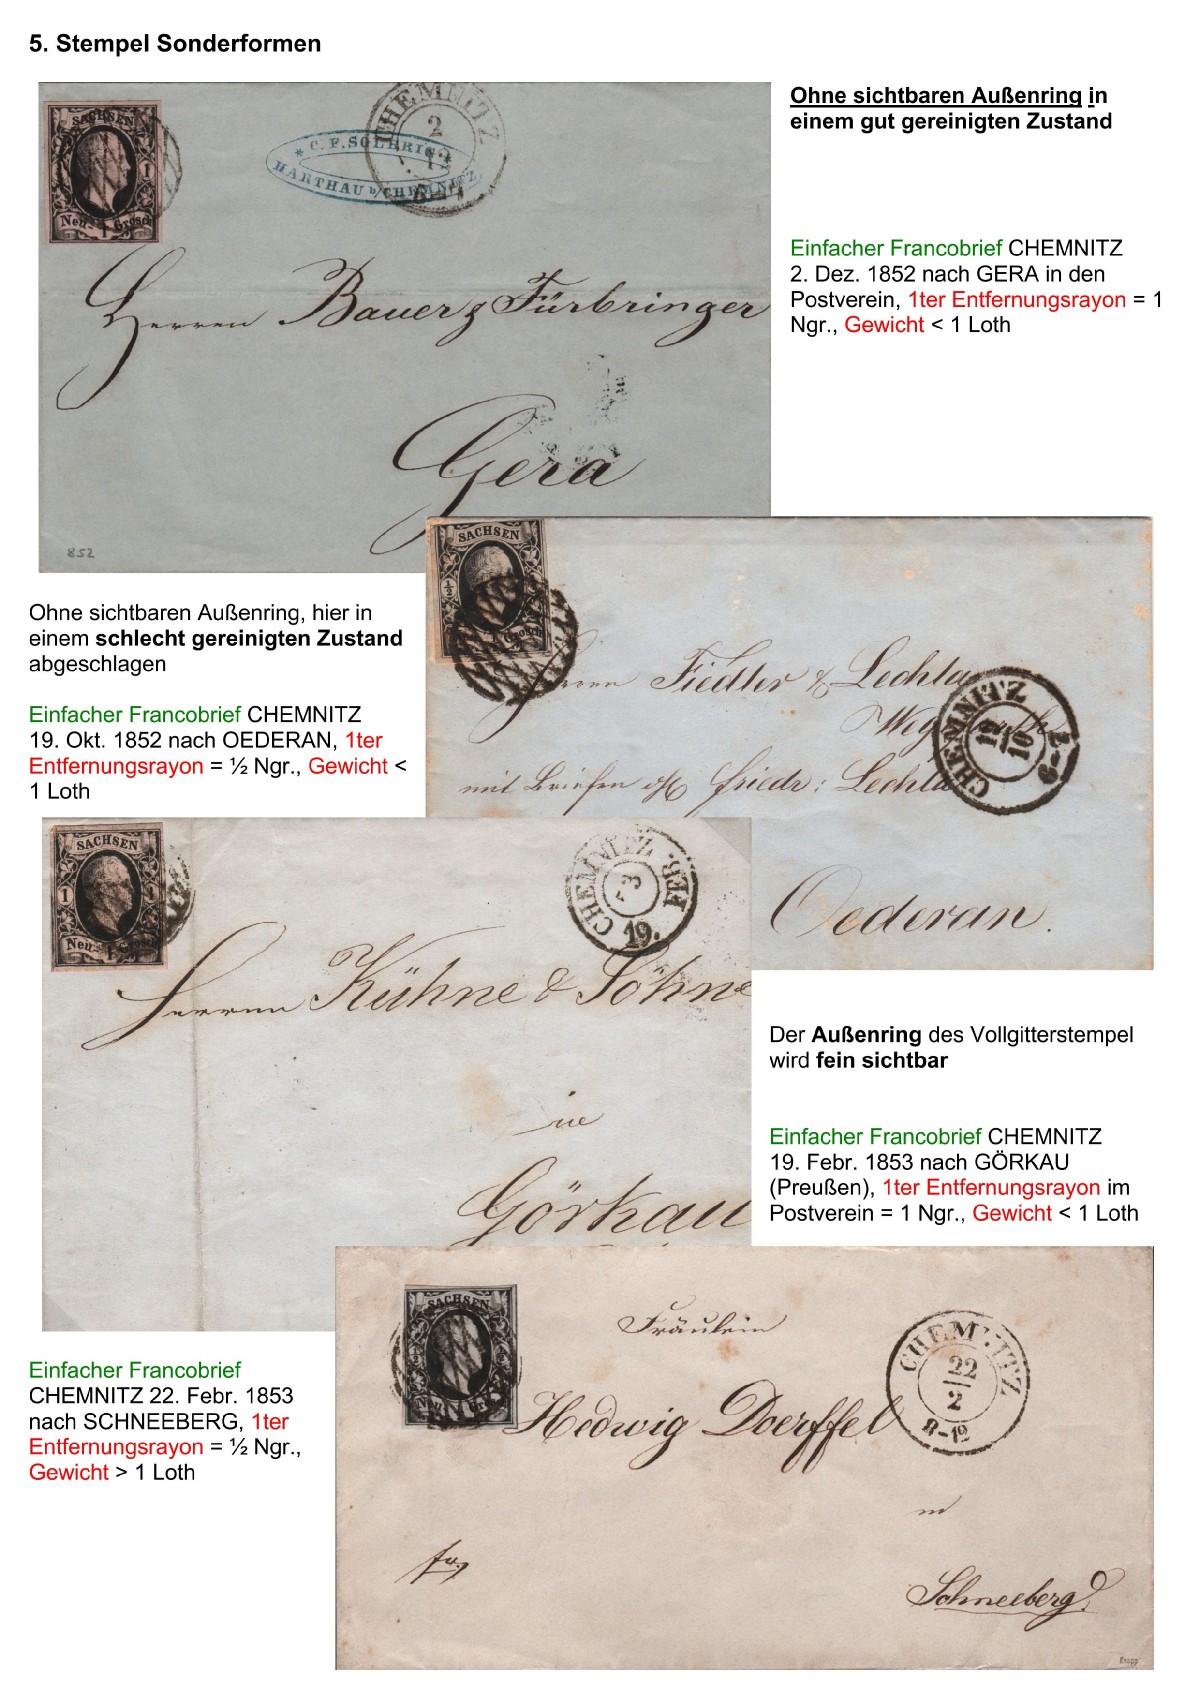 5. Stempel Sonderformen
Ohne sichtbaren Außenring in
einem gut gereinigten Zustand
SACHSEN
1
Neu- 1 Grosch
CHEMNITZ
2
12
* C. F. SOLBRIG *
HARTHAU b/CHEMNITZ
Einfacher Francobrief CHEMNITZ
2. Dez. 1852 nach GERA in den
Postverein, 1ter Entfernungsrayon = 1
Ngr., Gewicht < 1 Loth
Herren Bauer & Fürbringer
Gera
852
Ohne sichtbaren Außenring, hier in
einem schlecht gereinigten Zustand
abgeschlagen
Einfacher Francobrief CHEMNITZ
19. Okt. 1852 nach OEDERAN, 1ter
Entfernungsrayon = ½ Ngr., Gewicht <
1 Loth
SACHSEN
½
Grosch
Herren Fiedler & Lechla
CHEMNITZ
19
10
mit Briefen Friedr: Lechla
Oederan.
SACHSEN
1 1
Neu- 1 Grosch
CHEMNITZ
FEB.
19.
Herren Kühne & Söhne
in
Görkau
Der Außenring des Vollgitterstempel
wird fein sichtbar
Einfacher Francobrief CHEMNITZ
19. Febr. 1853 nach GÖRKAU
(Preußen), 1ter Entfernungsrayon im
Postverein = 1 Ngr., Gewicht < 1 Loth
Einfacher Francobrief
CHEMNITZ 22. Febr. 1853
nach SCHNEEBERG, 1ter
Entfernungsrayon = ½ Ngr.,
Gewicht > 1 Loth
SACHSEN
½ ½
CHEMNITZ
22
2
R-12
Fräulein
Hedwig Doerffel
in
Schneeberg